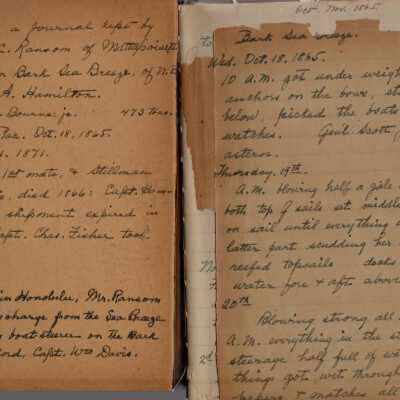 a Journal kept by
C. Ransom of Mattapoisett
Bark Sea Breeze, of N.B.
A. Hamilton.
Bourne jr. 473 tons.
Pac. Oct. 18, 1865.
1871.
1st mate, & Stillman
died 1866: Capt. Ham-
shipment expired in
Capt. Chas. Fisher took
in Honolulu, Mr. Ransom
discharge from the Sea Breeze
boatsteerer on the Bark
ord, Capt. Wm Davis.
Oct. Nov. 1865
to
Bark Sea Breeze.
Wed. Oct. 18, 1865.
10 A.M. got under weigh
anchors on the bows, st
below, picked the boats
watches. Genl Scott
astern.
Thursday, 19th
A.M. blowing half a gale
both top g sails set. middle
on sail until everything
latter part scudding her
reefed topsails decks
water fore & aft above
No
20th
Blowing strong all
2d
A.M. everything in the st
steerage half full of wa
things got wet through
& matches all